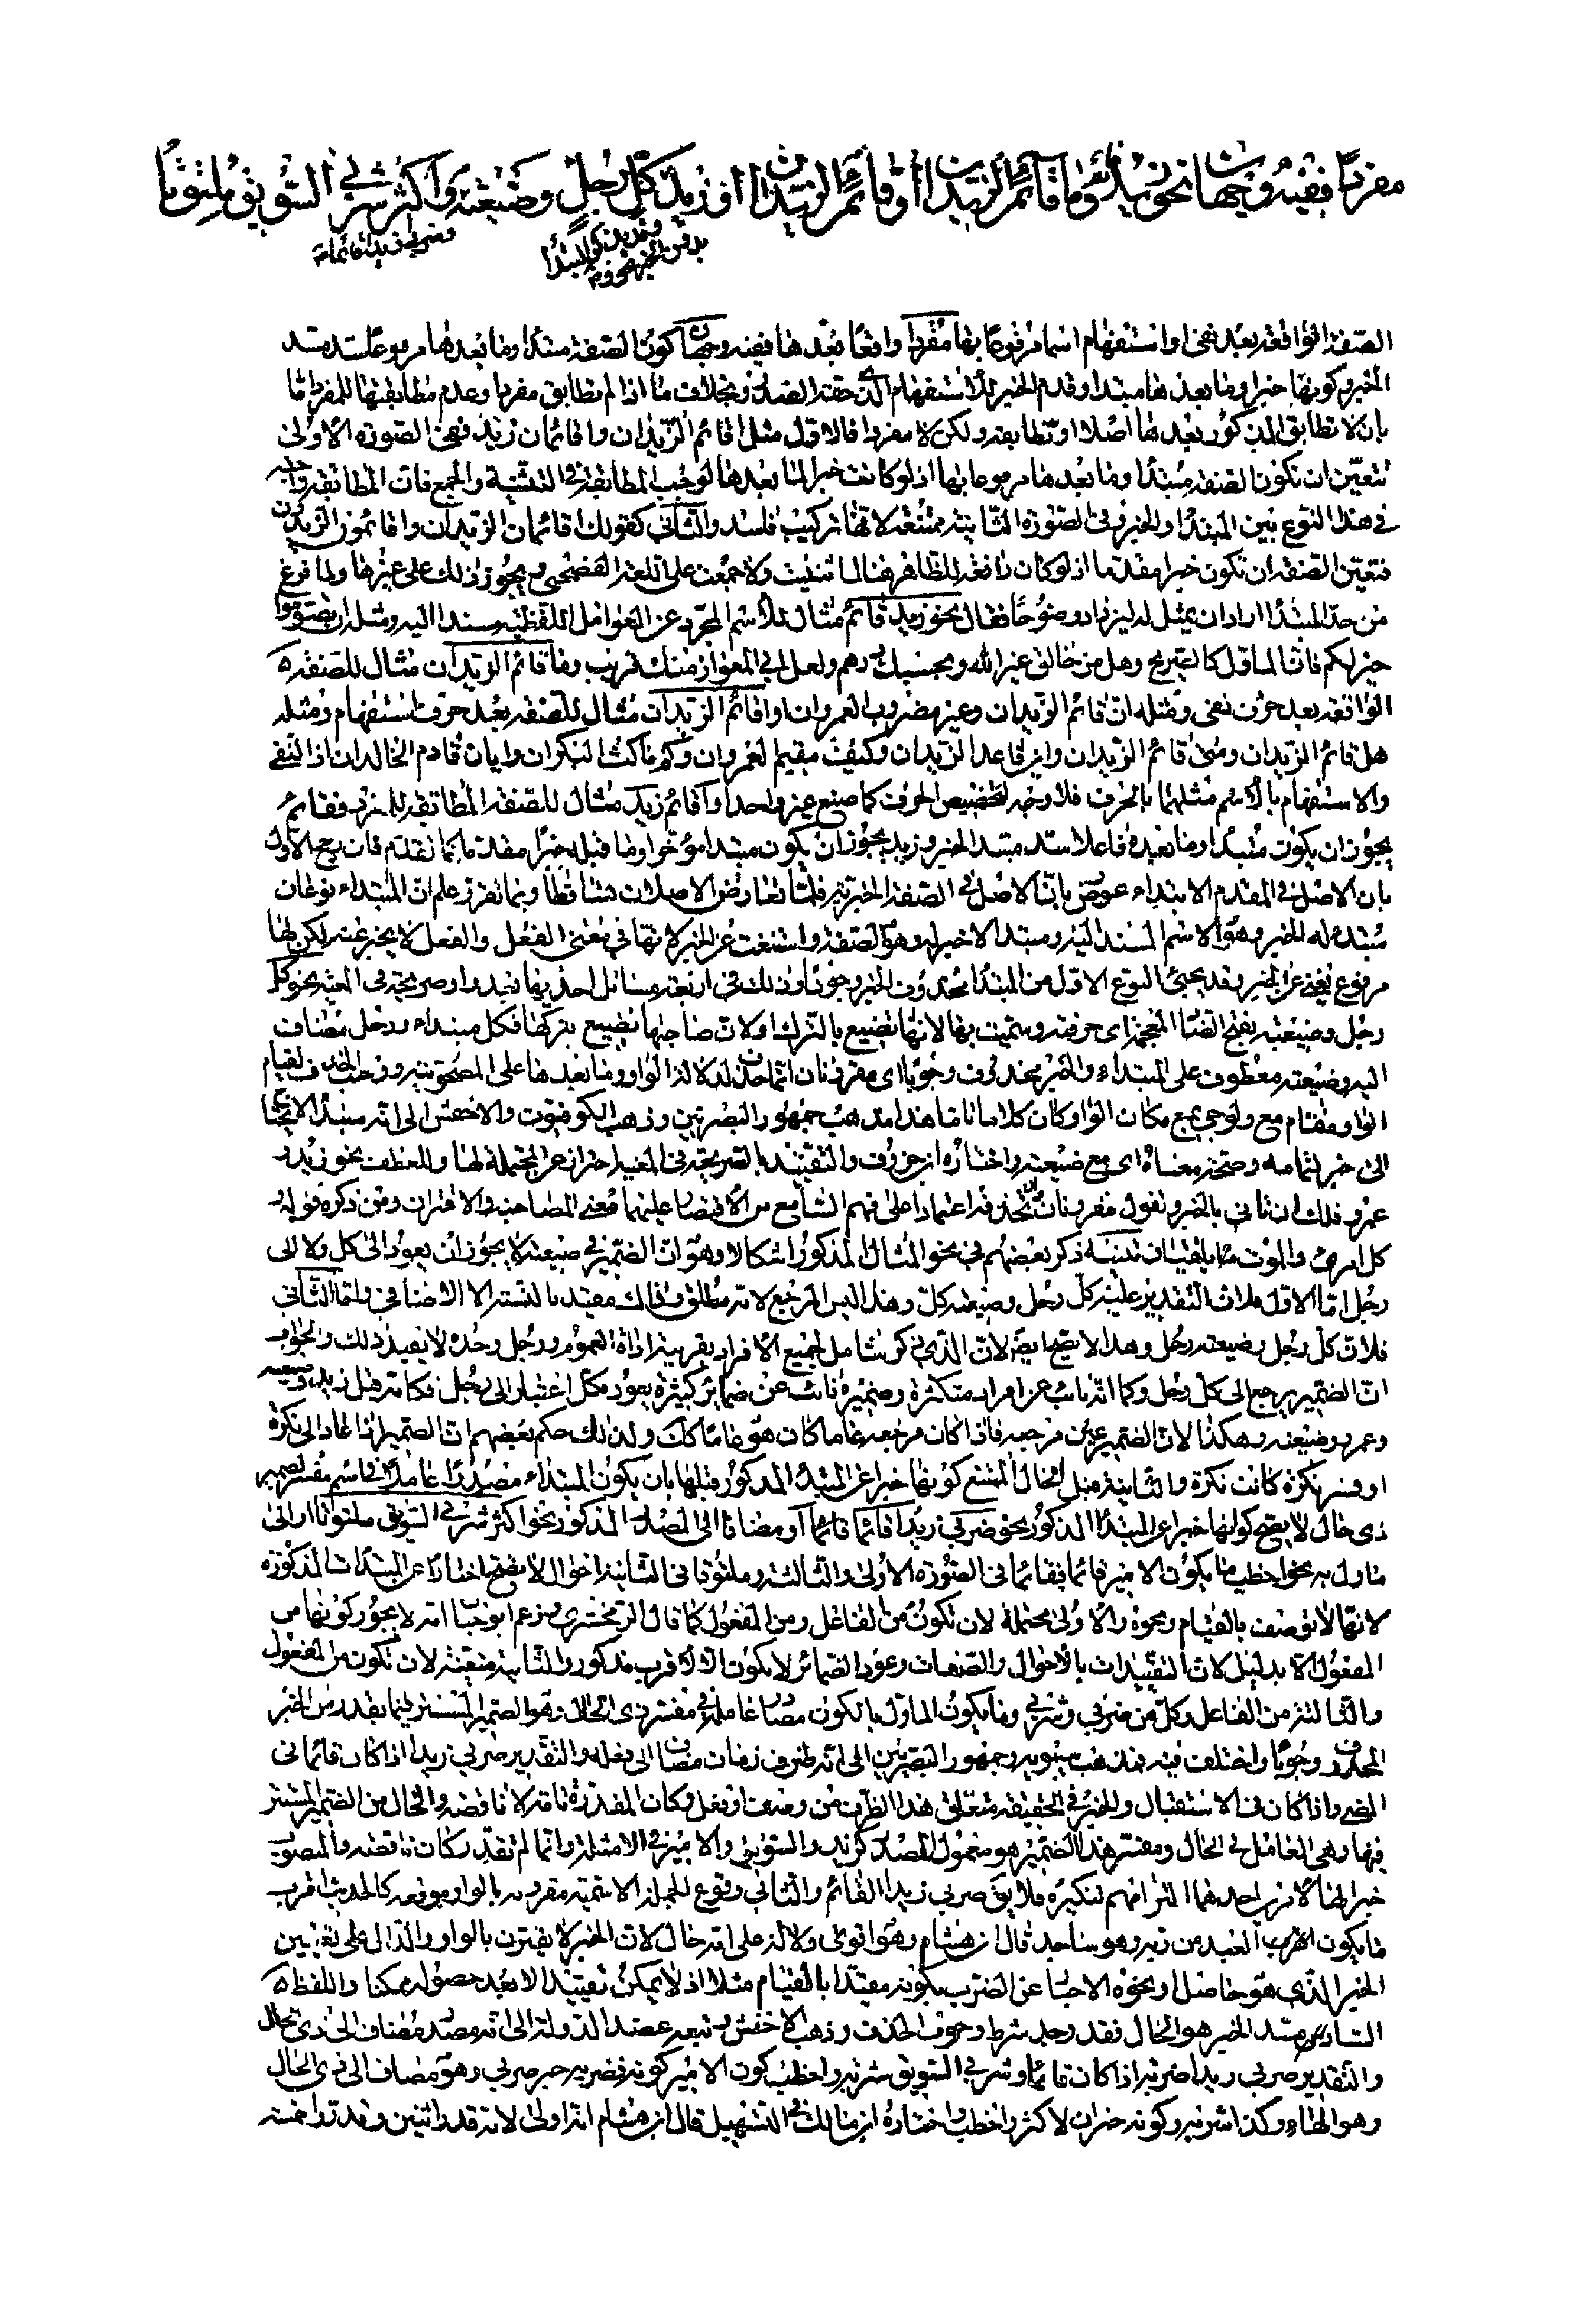 مفردًا ففيه وجهان نحو زيد قائم وما قائم الزيدان أو أقائم الزيدان أو زيد كل رجل وضيعته وأكثر شربي السويق ملتوتا
وضربي زيدا قائما
الصفة الواقعة بعد نفي او استفهام اسما مرفوعا بها مفردا واقعًا بعدها ففيه وجهان كون الصفة مبتدا وما بعدها مرفوعا سد مسد
الخبر وكونها خبرا وما بعدها مبتدا وقدم الخبر للاستفهام الذي حقه الصدر وبخلاف ما اذا لم تطابق مفردا وعدم مطابقتها للمفرد اما
بان لا تطابق المذكور بعدها اصلا او تطابقه ولكن لا مفردا فالاول مثل اقائم الزيدان واقائمان زيد فهي الصورة الاولى
تتعين ان تكون الصفة مبتدا وما بعدها مرفوعا بها اذ لو كانت خبرا لما بعدها لوجب المطابقة في التثنية والجمع فان المطابقة واجبة
في هذا النوع بين المبتدا والخبر وفي الصورة الثانية ممتنعة لانها تركيب فاسد والثاني كقولك اقائمان الزيدان واقائمون الزيدون
فتعين الصفة ان تكون خبرا مقدما اذ لو كان رافعة للظاهر هنا لما ثنيت ولا جمعت على اللغة الفصحى ويجوز ذلك على غيرها ولما فرغ
من حد المبتدا اراد ان يمثل له ليزداد وضوحا فقال نحو زيد قائم مثال للاسم المجرد عن العوامل اللفظية مسندا اليه ومثله ان تصوموا
خير لكم فان الماول كالصريح وهل من خالق غير الله وبحسبك درهم ولعل ابي المغوار منك قريب وما قائم الزيدان مثال للصفة
الواقعة بعد حرف نفي ومثله ان قائم الزيدان وغير مضروب العمران واقائم الزيدان مثال للصفة بعد حرف استفهام ومثله
هل قائم الزيدان ومتى قائم الزيدان واين قاعد الزيدان وكيف مقيم العمروان وكم ماكث البكران وايان قادم الخالدان اذ النفي
والاستفهام بالاسم مثلهما بالحرف فلا وجه لتخصيص الحرف كما صنع غير واحد واقائم زيد مثال للصفة المطابقة للمفرد فقائم
يجوز ان يكون مبتدا وما بعده فاعلا سد مسد الخبر وزيد يجوز ان يكون مبتدا مؤخرا وما قبله خبرًا مقدما كما تقدم فان رجح الاول
بان الاصل في المقدم الابتداء عورض بان الاصل في الصفة الخبرية فلما تعارض الاصلان تساقطا وبما تقرر علم ان المبتداء نوعان
مبتدا له الخبر وهو الاسم المسند اليه ومبتدا لا خبر له وهو الصفة واستغنت عن الخبر لانها في معنى الفعل والفعل لا يخبر عنه لكن لها
مرفوع يغني عن الخبر وقد يجئ النوع الاول من المبتدا محذوف الخبر وجوبا وذلك في اربعة مسائل احديها بعد واو صريحة في المعية نحو كل
رجل وضيعته بفتح الضاد المعجمة اي حرفته وسميت بها لانها تضيع بالترك اولان صاحبها يضيع بتركها فكل مبتداء ورجل مضاف
اليه وضيعته معطوف على المبتداء والخبر محذوف وجوبا اي مقرونان انما حذف لدلالة الواو وما بعدها على المصحوبية ووجب الحذف لقيام
الواو مقام مع ولو جئ بمع مكان الواو كان كلاما تاما هذا مذهب جمهور البصريين وذهب الكوفيون والاخفش الى انه مبتدا لا يحتاج
الى خبر لتمامه وصحة معناه اي مع ضيعته واختاره ابن خروف والتقييد بالصريحة في المعية احتراز عن المحتملة لها وللعطف نحو زيد و
عمرو فلك ان تاتي بالخبر وتقول مقرونان وان تحذفه اعتمادا على فهم السامع من الاقتصار عليهما معنى المصاحبة والاقتران ومن ذكره قوله
كل امرئ والموت يلتقيان تنبيه ذكر بعضهم في نحو المثال المذكور اشكالا وهو ان الضمير في ضيعته لا يجوز ان يعود الى كل ولا الى
رجل اما الاول فلان التقدير عليه كل رجل وضيعة كل وهذا ليس المرجع لانه مطلق وذلك مقيد بالنسبة الاضافي واما الثاني
فلان كل رجل وضيعته رجل وهذا لا يصح ايضا لان الذي ذكر شامل لجميع الافراد بقرينة اداة العموم ورجل وحده لا يفيد ذلك والجواب
ان الضمير يرجع الى كل رجل وكما انه نائب عن افراد متكثرة وضميره نائب عن ضمائر كثيرة يعود كل اعتبار الى رجل فكانه قيل زيد وضيعته
وعمرو وضيعته وهكذا لان الضمير عين مرجعه فاذا كان مرجعه عاما كان هو عاما كذلك ولذلك حكم بعضهم ان الضمير اذا عاد الى نكرة
او فسر بنكرة كانت نكرة والثانية قبل الحال الممتنع كونها خبرا عن المبتدا المذكور قبلها بان يكون المبتداء مصدرًا عاملا في اسم مفسر لضمير
ذي حال لا يصح كونها خبرا عن المبتدا المذكور نحو ضربي زيدا قائما او مضافا الى المصدر المذكور نحو اكثر شربي السويق ملتوتا او الى
ماول به نحو اخطب ما يكون الامير قائما فقائما في الصورة الاولى والثالثة وملتوتا في الثانية احوال لا يصح اخبارا عن المبتدات المذكورة
لانها لا توصف بالقيام ونحوه والاولى محتملة لان تكون من الفاعل ومن المفعول كما قال الزمخشري وزعم ابو حيان انه لا يجوز كونها من
المفعول الا بدليل لان التقييدات بالاحوال والصفات وعود الضمائر لا يكون الا لاقرب مذكور والثانية متعينة لان تكون من المفعول
والثالثة من الفاعل وكل من ضربي وشربي وما يكون الماول بالكون مصدر عامل في مفسر ذي الحال وهو الضمير المستتر فيما يقدر من الخبر
المحذوف وجوبًا واختلف فيه فذهب سيبويه وجمهور البصريين الى انه ظرف زمان مضاف الى فعله والتقدير ضربي زيدا اذ كان قائما في
المضي واذا كان في الاستقبال والخبر في الحقيقة متعلق هذا الظرف من وصف او فعل وكان المقدرة تامة لا ناقصة والحال من الضمير المستتر
فيها وهي العامل في الحال ومفسر هذا الضمير هو معمول المصدر كزيد والسويق والامير في الامثلة وانما لم تقدر كان ناقصة والمنصوب
خبر لها لامرين احدهما التزامهم تنكيره فلا يق ضربي زيدا القائم والثاني وقوع الجملة الاسمية مقرونة بالواو موقعه كالحديث اقرب
ما يكون العبد من ربه وهو ساجد قال ابن هشام وهو اقوى دلالة على انه حال لان الخبر لا يقترن بالواو والدال على تعيين
الخبر الذي هو حاصل ونحوه الاخبار عن الضرب بكونه مقيدا بالقيام مثلا اذ لا يمكن تقييده الا بعد حصوله ممكنا واللفظ
الساد مسد الخبر هو الحال فقد وجد شرط وجوب الحذف وذهب الاخفش وتبعه عضد الدولة الى انه مصدر مضاف الى ذي الحال
والتقدير ضربي زيدا ضربه اذا كان قائما وشربي السويق شربه واخطب كون الامير كونه فضربه خبر ضربي وهو مضاف الى ذي الحال
وهو الهاء وكذا شربه وكونه خبران لاكثر واخطب واختاره ابن مالك في التسهيل قال ابن هشام انه اولى لانه قدر اثنين وقدروا خمسة